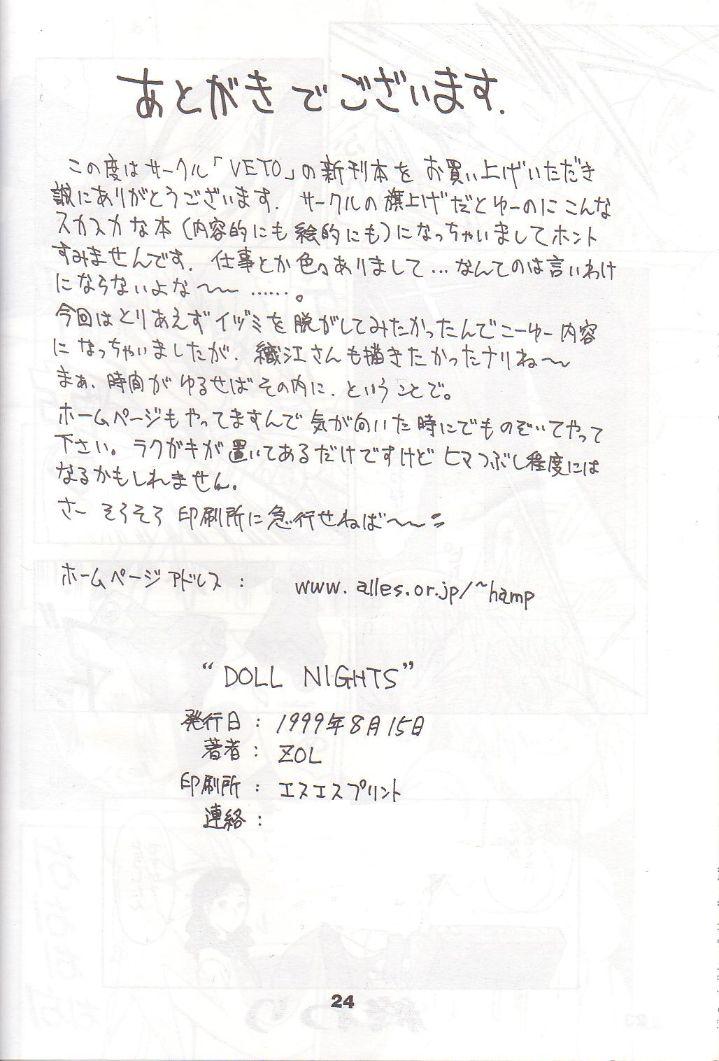 あとがきでございます.
この度はサークル「VETO」の新刊本をお買い上げいただき
誠にありがとうございます. サークルの旗上げだとゆーのにこんな
スカスカな本(内容的にも絵的にも)になっちゃいましてホント
すみませんです. 仕事とか色々ありまして…なんてのは言いわけ
にならないよな〜〜……。
今回はとりあえずイヅミを脱がしてみたかったんでこーゆー内容
になっちゃいましたが. 織江さんも描きたかったナリね〜
まぁ. 時間がゆるせばその内に. ということで。
ホームページもやってますんで気が向いた時にでものぞいてやって
下さい。ラクガキが置いてあるだけですけどヒマつぶし程度には
なるかもしれません。
さー そろそろ 印刷所に急行せねば〜〜
ホームページアドレス : www.alles.or.jp/~hamp
“DOLL NIGHTS”
発行日 : 1999年8月15日
著者 : ZOL
印刷所 : エスエスプリント
連絡 :
24